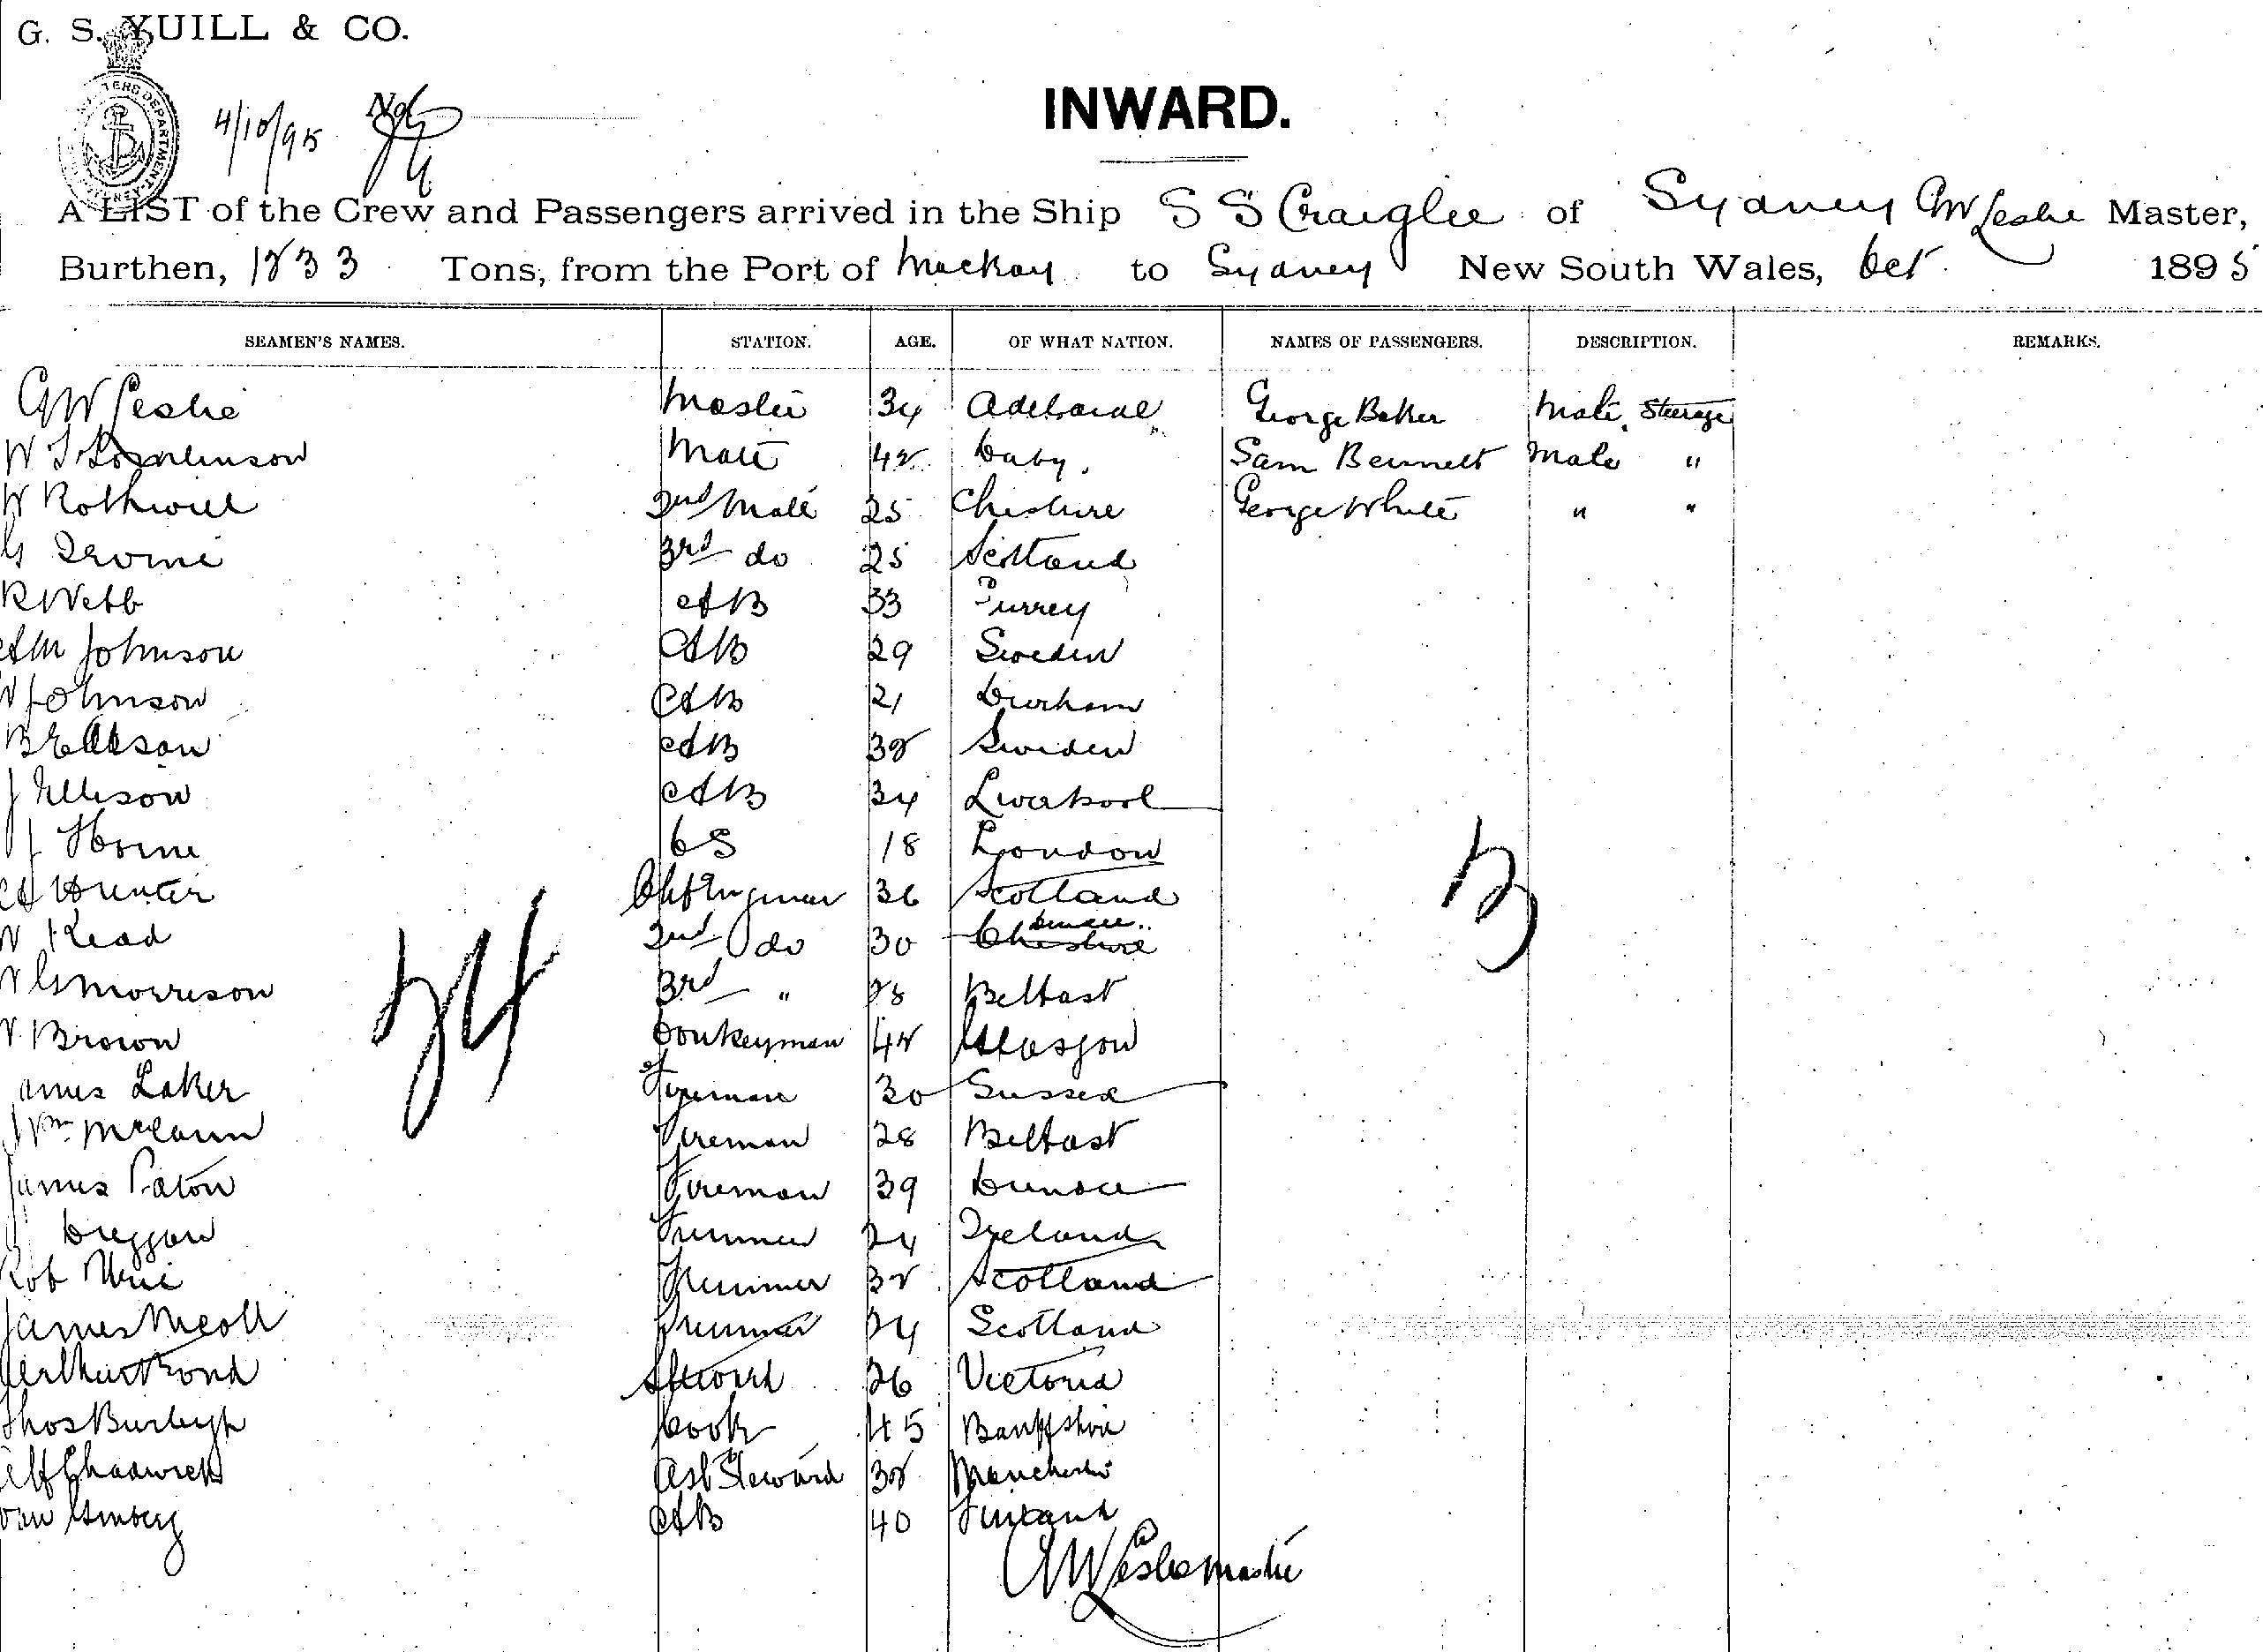 G. S. YUILL & CO.
4/10/95
INWARD.
A LIST of the Crew and Passengers arrived in the Ship S S Craiglee of Sydney GW Leslie Master,
Burthen, 1833 Tons, from the Port of Mackay to Sydney New South Wales, Oct 1895
SEAMEN'S NAMES. STATION. AGE. OF WHAT NATION. NAMES OF PASSENGERS. DESCRIPTION. REMARKS.
GW Leslie Master 34 George Baker Male Steerage
W Tomlinson Mate 42 Sam Bennett Male "
W Rothwell 2nd Mate 25 Cheshire George White " "
G Irvine 3rd do 25 Scotland
R Webb AB 33 Surrey
AM Johnson AB 29 Sweden
W Johnson AB 21 Durham
B AB 32 Sweden
J Ellison AB 34 Liverpool
J Horne OS 18 London
A Hunter 36 Scotland
W Read 2nd do 30 Cheshire Dundee
W G Morrison 3rd " 28 Belfast
W Brown Donkeyman 42 Glasgow
James Laker Fireman 30 Sussex
Wm McCann Fireman 28 Belfast
James Paton Fireman 39 Dundee
Dreggan Trimmer 24 Ireland
Rob Trimmer 32 Scotland
James Nicoll Trimmer 24 Scotland
Arthur Bond Steward 26 Victoria
Thos Burleigh Cook 45 Banffshire
Alf Chadwick Asst Steward 32 Manchester
AB 40 Finland
24
3
GW Leslie Master